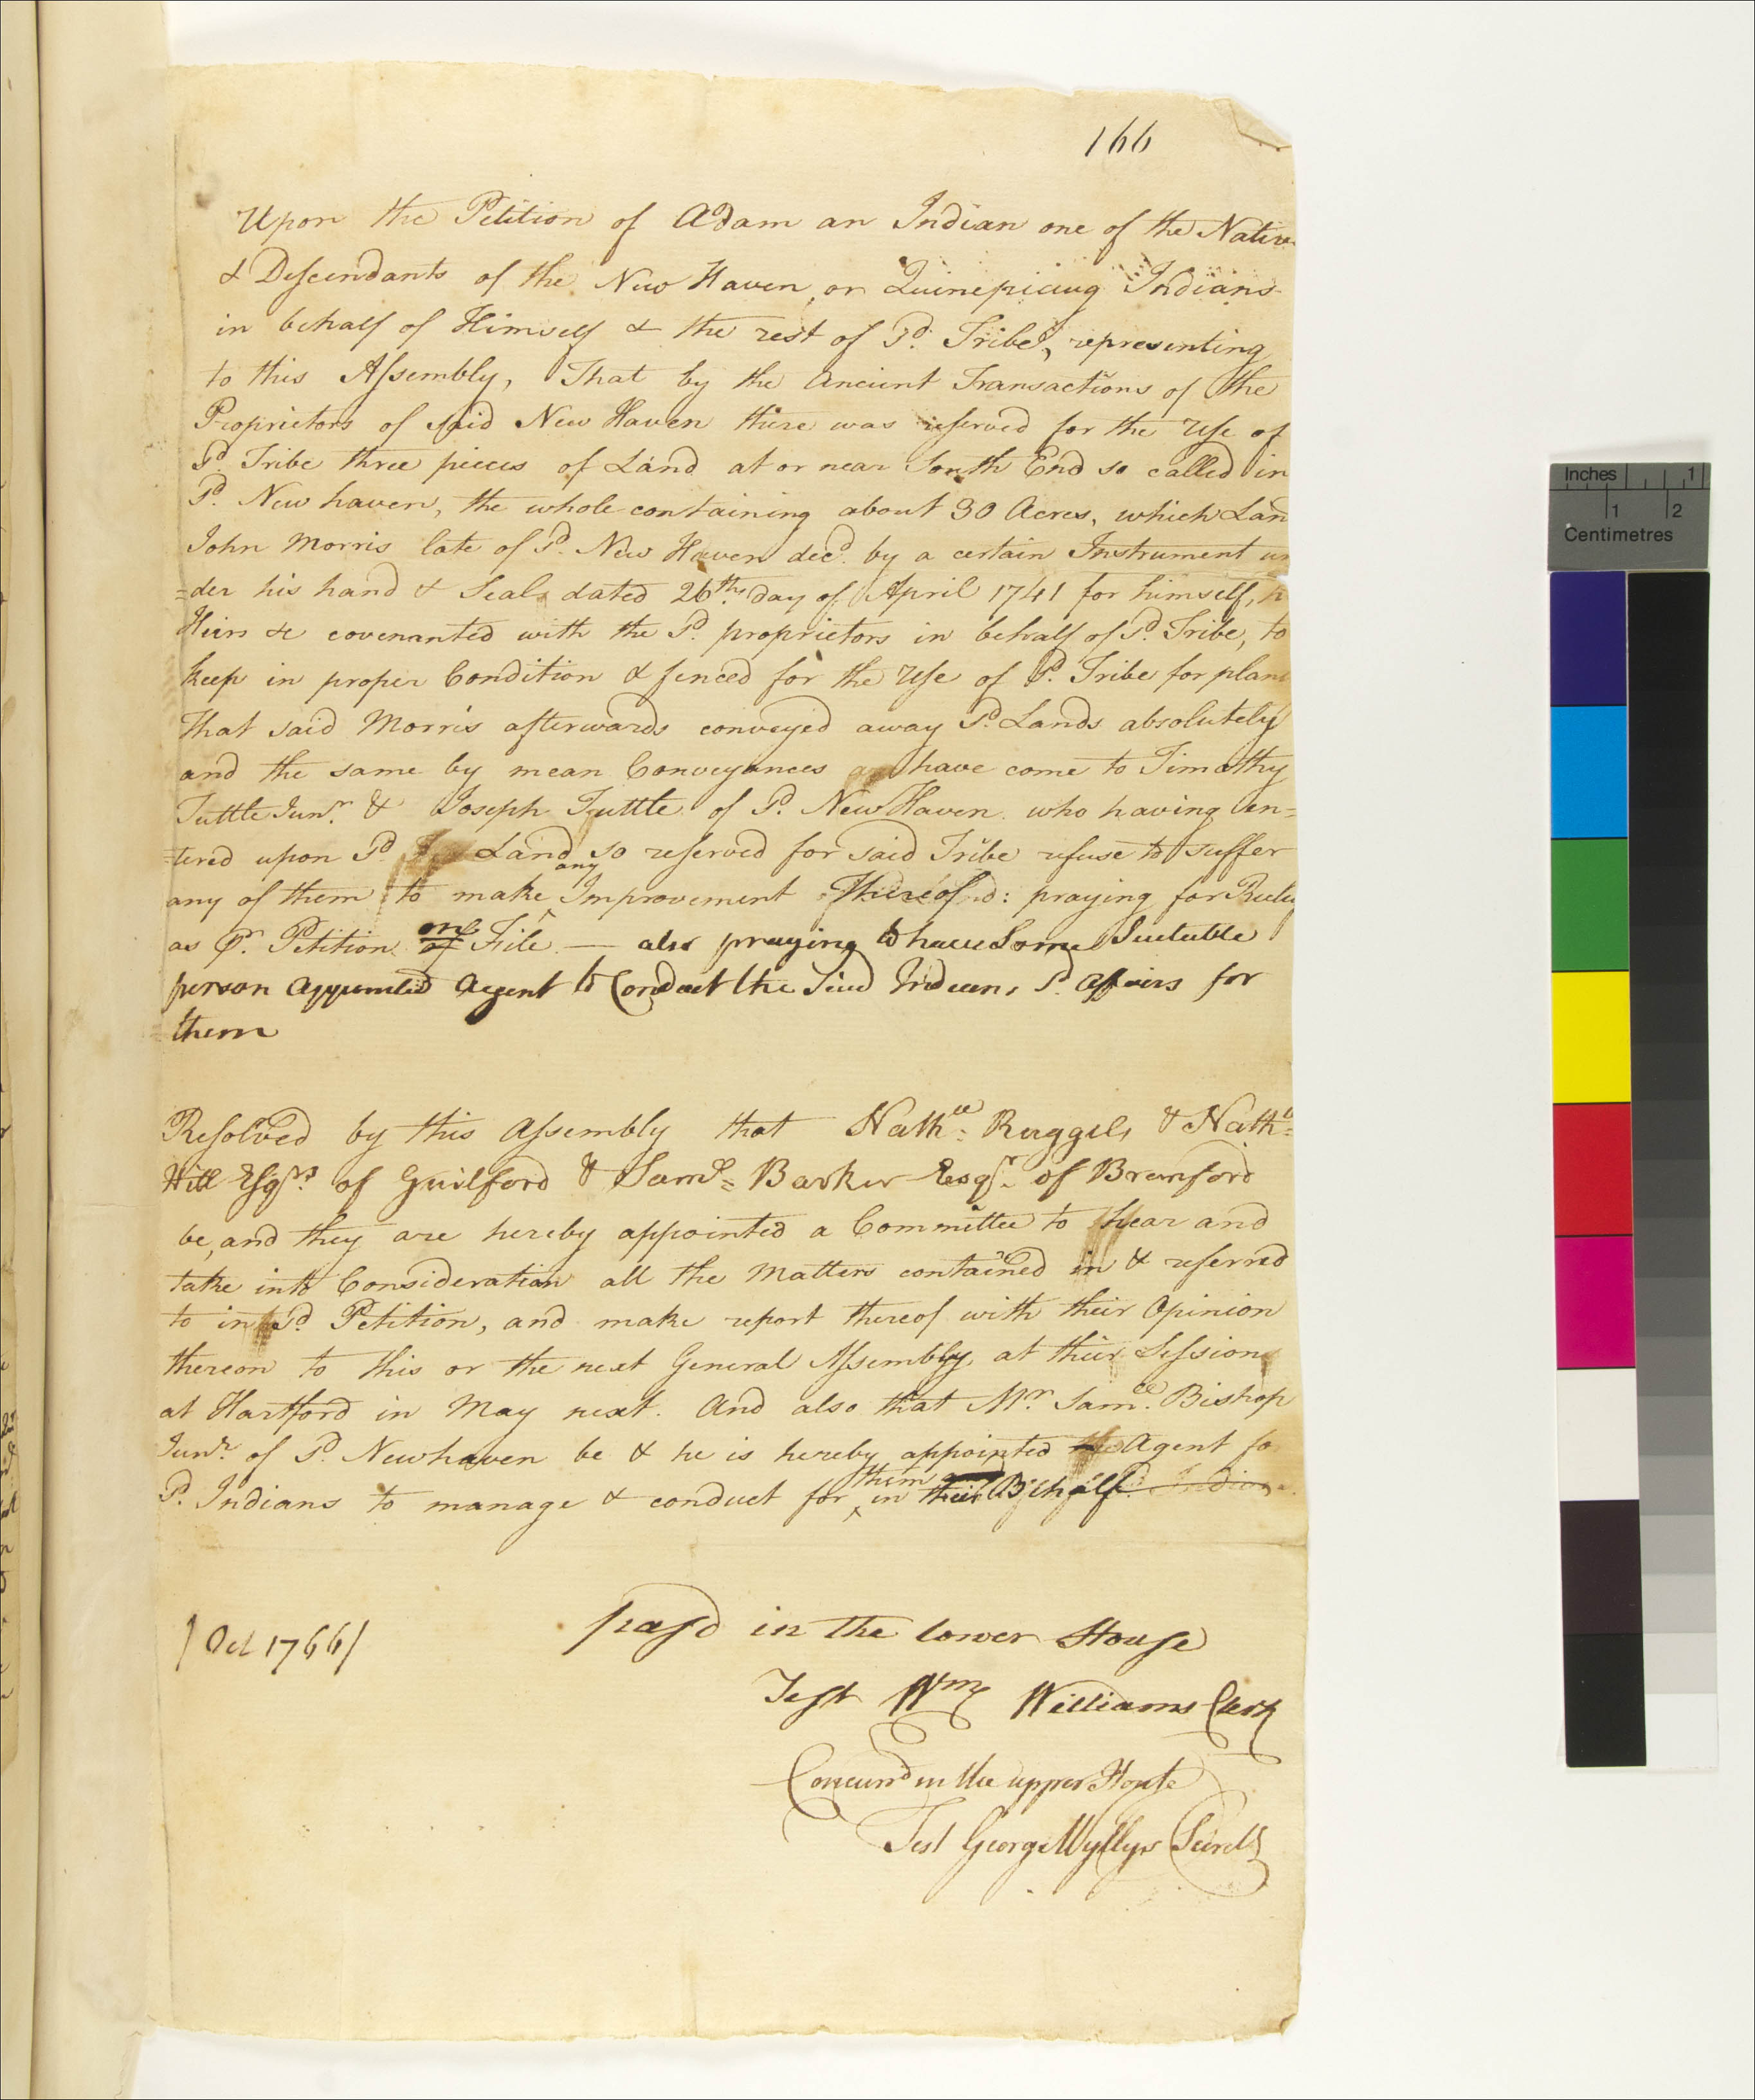 166
Upon the Petition of Adam an Indian one of the Native
& Descendants of the New Haven, or Quinepiaug Indians
in behalf of Himself & the rest of Sd. Tribe, representing
to this Assembly, That by the Ancient Transactions of the
Proprietors of said New Haven there was reserved for the Use of
Sd. Tribe three pieces of Land at or near South End so called in
Sd. New haven, the whole containing about 30 Acres, which Lan
John Morris late of Sd. New Haven decd. by a certain Instrument un
=der his hand & Seal, dated 26th. day of April 1741 for himself, h
Heirs &c covenanted with the Sd. proprietors in behalf of Sd. Tribe, to
keep in proper Condition & fenced for the Use of Sd. Tribe for plant
That said Morris afterwards conveyed away Sd. Lands absolutely
and the same by mean Conveyances have come to Timothy
Tuttle Junr. & Joseph Tuttle of Sd. New Haven who having en=
=tered upon Sd. Land so reserved for said Tribe refuse to suffer
any of them to make any Improvement Thereof: praying for Relief
as Pr. Petition on File — also praying to have Some Suitable
person appointed Agent to Conduct the Said Indians Sd. affairs for
them
Resolved by this Assembly that Nathll. Ruggels & Nathl.
Hill Esqrs. of Guilford & Saml. Barker Esqr. of Branford
be, and they are hereby appointed a Committee to hear and
take into Consideration all the Matters contained in & referred
to in Sd. Petition, and make report thereof with their Opinion
thereon to this or the next General Assembly, at their Session
at Hartford in May next. And also that Mr. Samll. Bishop
Junr. of Sd. Newhaven be & he is hereby appointed Agent fo
Sd. Indians to manage & conduct for them in their Behalf Indians.
/Oct 1766/
pasd in the lower House
Test Wm Williams Clerk
Concurrd in the upper House
Test George Wyllys Secrety